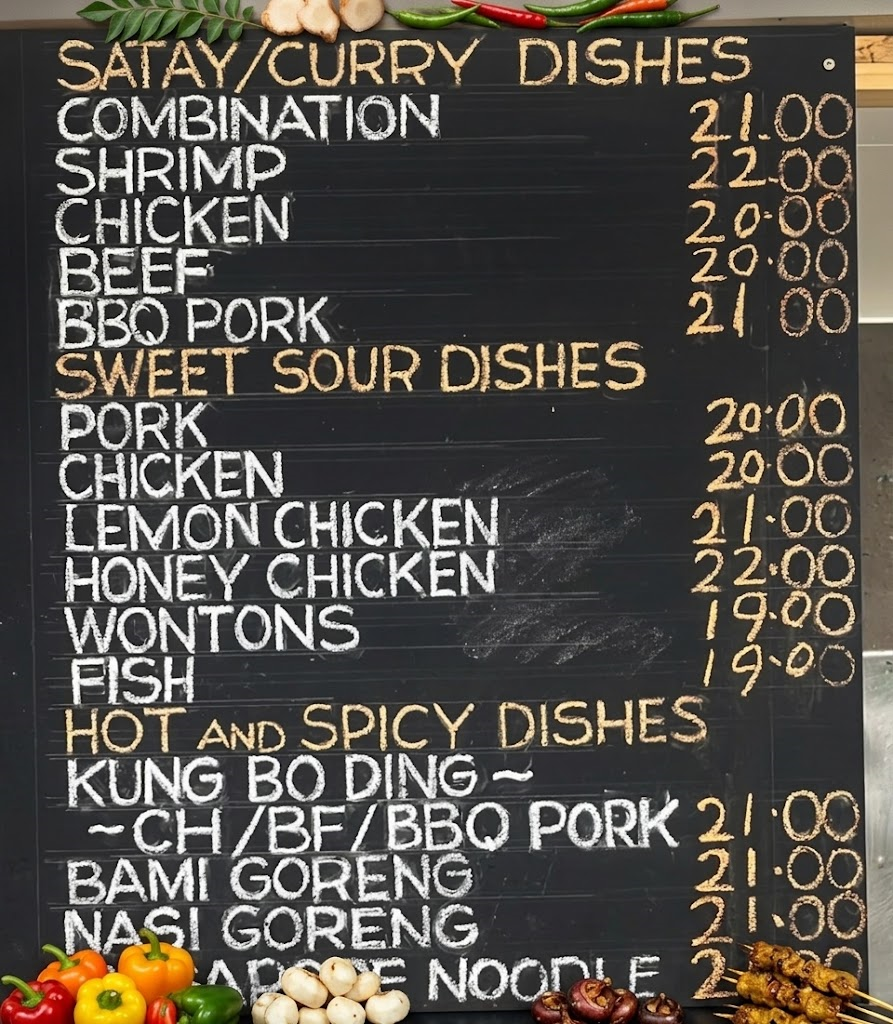 SATAY/CURRY DISHES
COMBINATION 21.00
SHRIMP 22.00
CHICKEN 20.00
BEEF 20.00
BBQ PORK 21 00
SWEET SOUR DISHES
PORK 20.00
CHICKEN 20.00
LEMON CHICKEN 21.00
HONEY CHICKEN 22.00
WONTONS 19.00
FISH 19.00
HOT AND SPICY DISHES
KUNG BO DING ~
~ CH/BF/BBQ PORK 21.00
BAMI GORENG 21.00
NASI GORENG 21.00
NOODLE